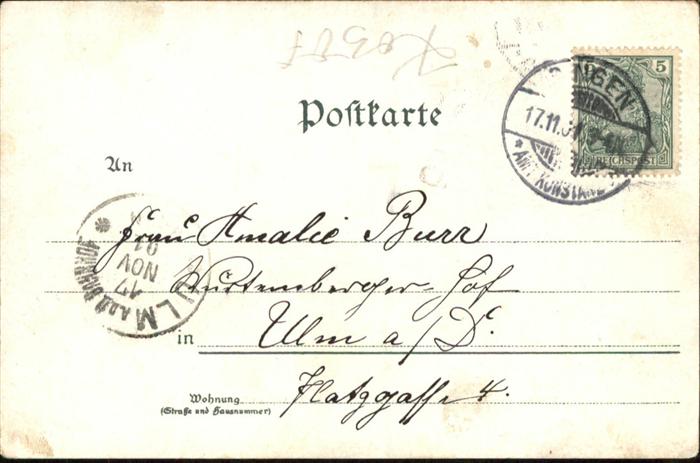 5
REICHSPOST
17.11.01
* AMT KONSTANZ
Postkarte
An
Frau Amalie Burr
Württemberger-Hof
in Ulm a/D.
Platzgasse 4.
Wohnung
(Straße und Hausnummer)
ULM A.D.D. BAHNHOF
17
NOV
01